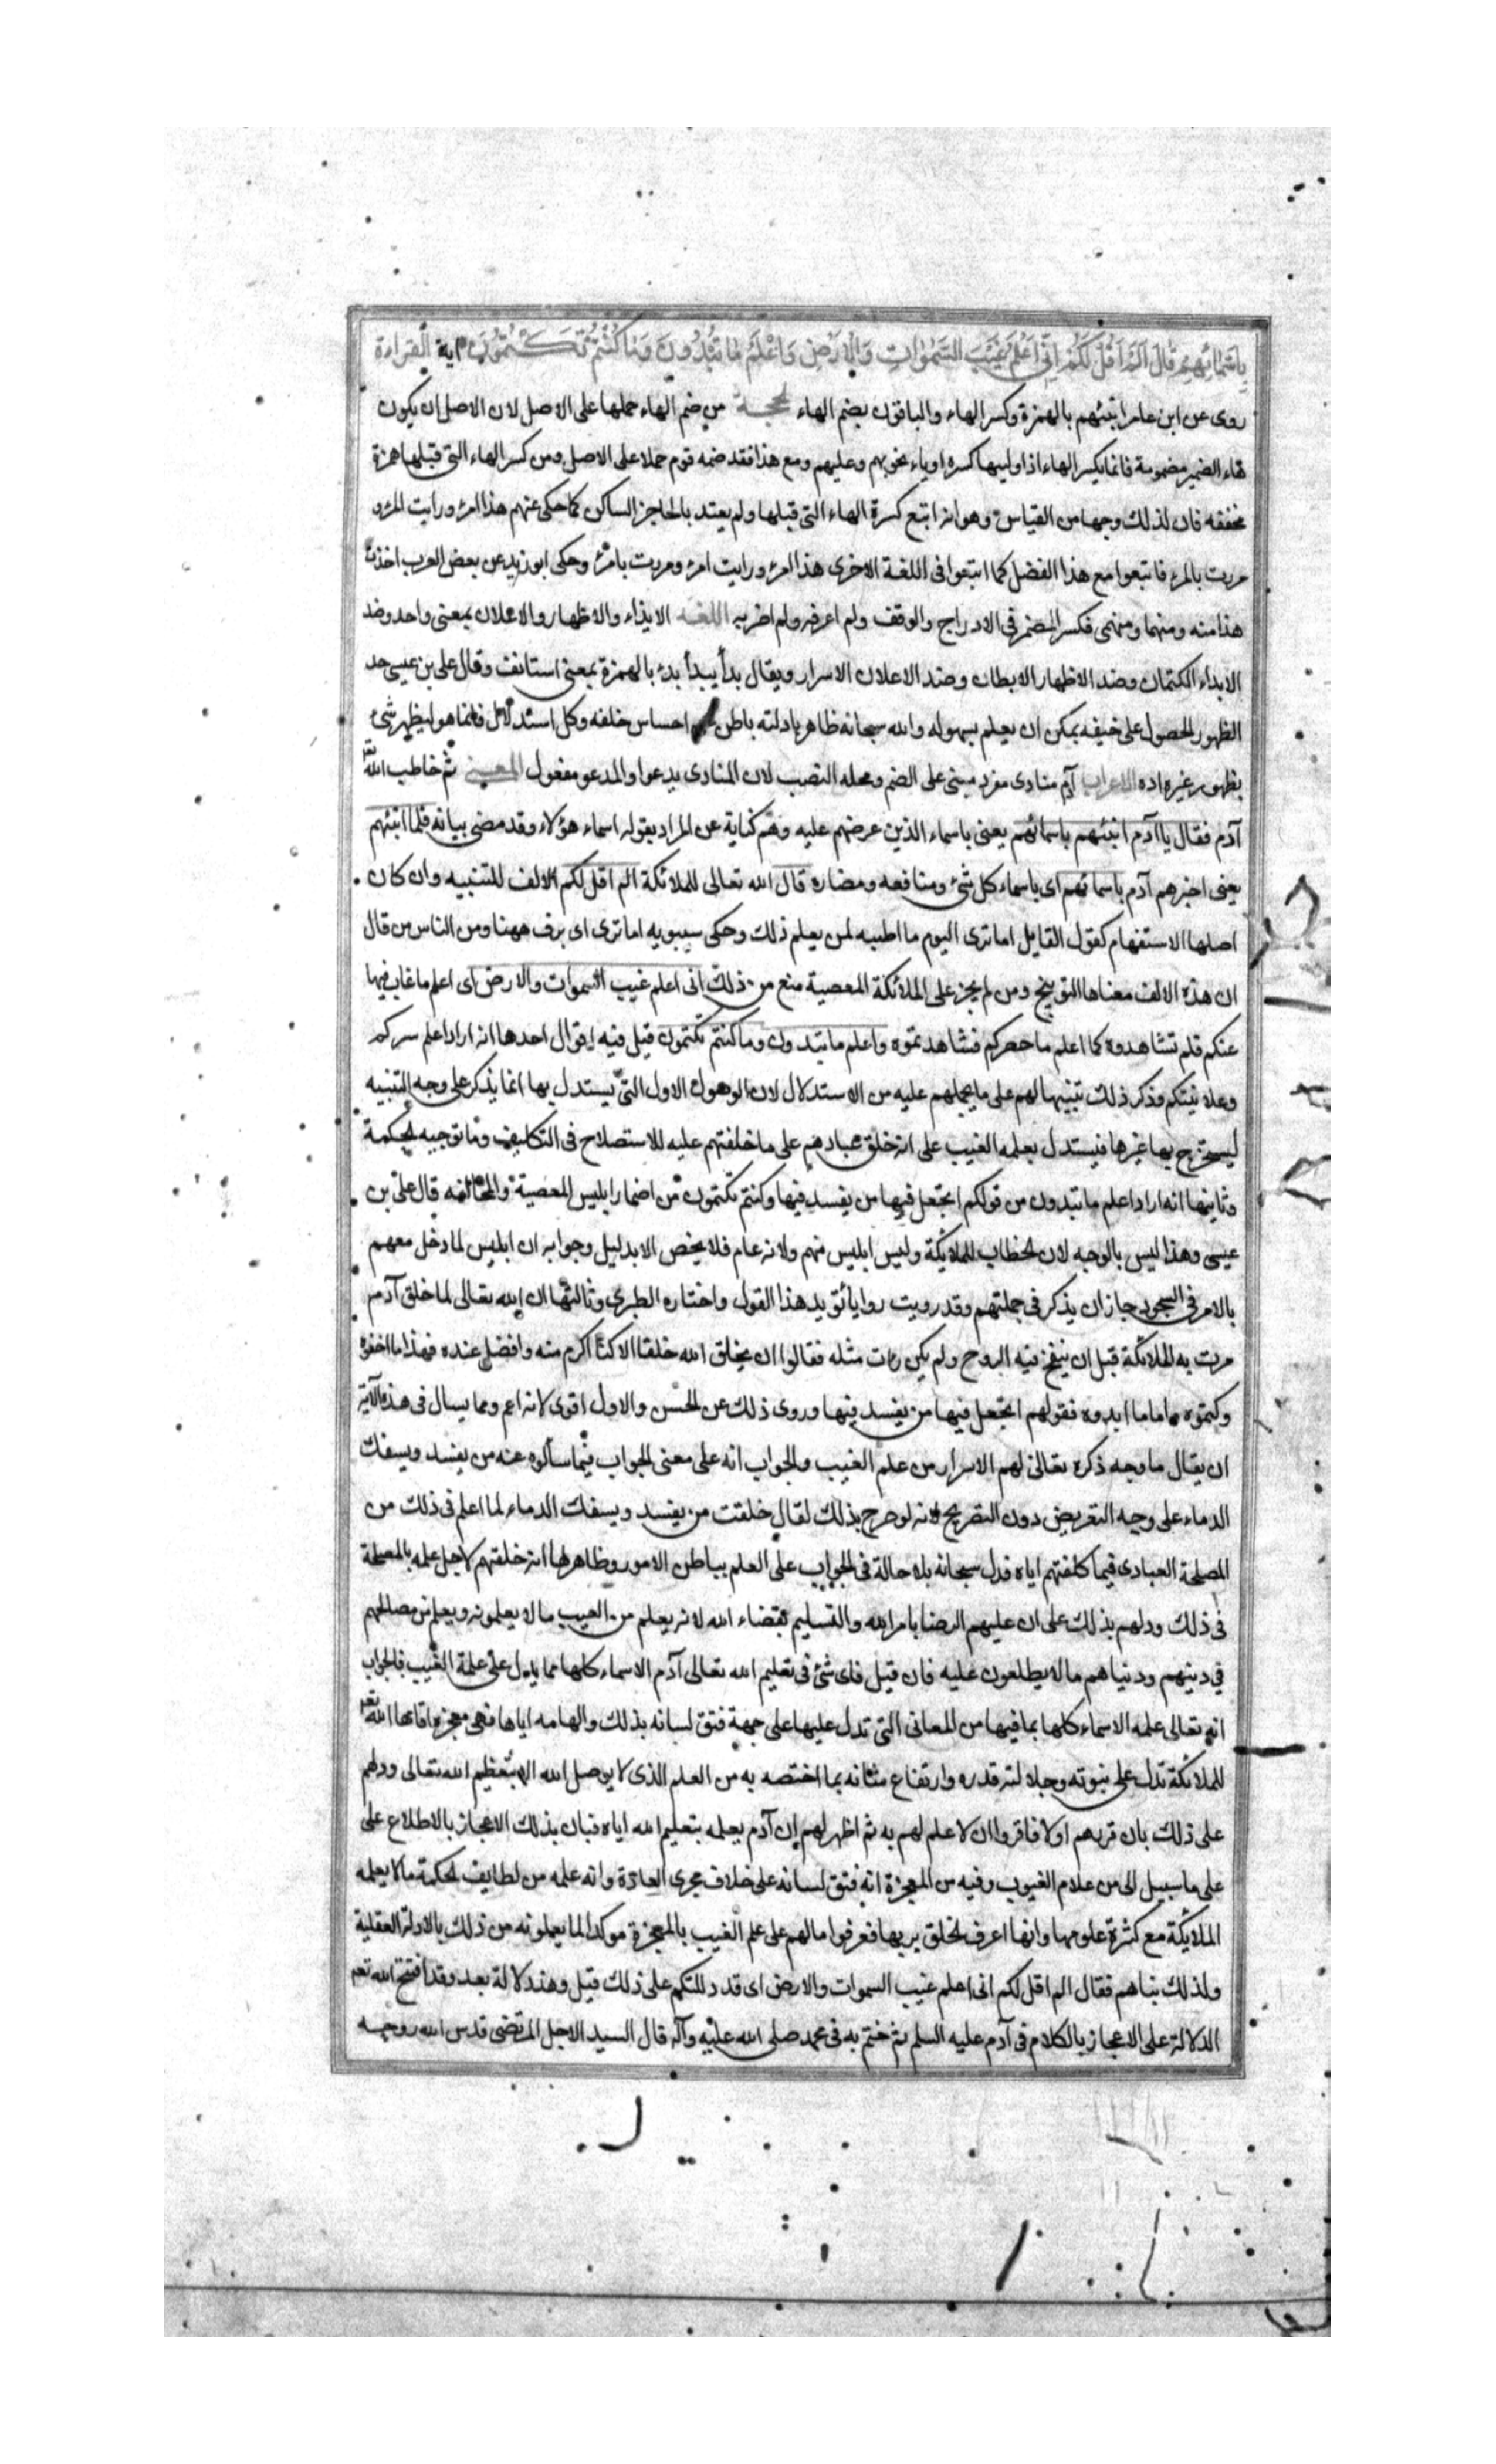 بِاَسْمَائِهِمْ قَالَ اَلَمْ اَقُلْ لَكُمْ اِنِّي اَعْلَمُ غَيْبَ السَّمٰوَاتِ وَالْاَرْضِ وَاَعْلَمُ مَا تُبْدُونَ وَمَا كُنْتُمْ تَكْتُمُونَ اية القراءة
روى عن ابن عامر انبئهم بالهمزة وكسر الهاء والباقون بضم الهاء الحجة من ضم الهاء حملها على الاصل لان الاصل ان يكون
هاء الضمير مضمومة فانما يكسر الهاء اذا وليها كسره او ياء نحو بهم وعليهم ومع هذا فقد ضمه قوم حملا على الاصل ومن كسر الهاء التى قبلها همزة
مخففه فان لذلك وجها من القياس وهو انه اتبع كسرة الهاء التى قبلها ولم يعتد بالحاجز الساكن كما حكى عنهم هذا المرء ورايت المرء و
مررت بالمرء فاتبعوا مع هذا الفضل كما اتبعوا فى اللغة الاخرى هذا امرء ورايت امرء ومررت بامرء وحكى ابو زيد عن بعض العرب اخذت
هذا منه ومنهما ومنهمى فكسر المضمر فى الادراج والوقف ولم اعرفه ولم اضربه اللغة الابذاء والاظهار والاعلان بمعنى واحد وضد
الابداء الكتمان وضد الاظهار الابطان وضد الاعلان الاسرار ويقال بدأ يبدأ بدء بالهمزة بمعنى استانف وقال على بن عيسى حد
الظهور الحصول على خيفه يمكن ان يعلم بسهوله والله سبحانه ظاهر بادلته باطن احساس خلفه وكل استدلال فانما هو ليظهر شئ
بظهور غيره اده الاعراب آدم منادى مفرد مبنى على الضم ومحله النصب لان المنادى يدعوا والمدعو مفعول المعنى ثم خاطب الله تعه
آدم فقال يا آدم انبئهم باسمائهم يعنى باسماء الذين عرضهم عليه وهم كناية عن المراد بقوله اسماء هؤلاء وقد مضى بيانه فلما انبئهم
يعنى اخبرهم آدم باسمائهم اى باسماء كل شئ ومنافعه ومضاره قال الله تعالى للملائكة الم اقل لكم الالف للتنبيه وان كان
اصلها الاستفهام كقول القايل اما ترى اليوم ما اطيبه لمن يعلم ذلك وحكى سيبويه اما ترى اى برف ههنا ومن الناس من قال
ان هذه الالف معناها التوبيخ ومن لم يجز على الملائكة المعصية منع من ذلك انى اعلم غيب السموات والارض اى اعلم ما غاب فيها
عنكم فلم تشاهدوه كما اعلم ما حضركم فشاهدتموه واعلم ما تبدون وما كنتم تكتمون قيل فيه اقوال احدها انه اراد اعلم سركم
وعلانيتكم وذكر ذلك تنبيها لهم على ما يحيلهم عليه من الاستدلال لان الوهون الاول التى يستدل بها انما يذكر على وجه التنبيه
ليستخرج بها غيرها فيستدل بعلمه الغيب على انه خلق عبادهم على ما خلفتهم عليه للاستصلاح فى التكليف وما توجبه الحكمة
وثانيها انه اراد اعلم ما تبدون من قولكم اتجعل فيها من يفسد فيها وكنتم تكتمون من اضمار ابليس المعصية والمخالفه قال على بن
عيسى وهذا ليس بالوجه لان الخطاب للملايكة وليس ابليس منهم ولانه عام فلا يخص الا بدليل وجوابه ان ابليس لما دخل معهم
بالامر فى السجود جاز ان يذكر فى جملتهم وقد رويت روايا تؤيد هذا القول واختاره الطبرى وثالثها ان الله تعالى لما خلق آدم
مرت به الملائكة قبل ان ينفخ فيه الروح ولم يكن رات مثله فقالوا ان يخلق الله خلقا الا كنا اكرم منه وافضل عنده فهذا ما اخفوه
وكتموه واما ما ابدوه فقولهم اتجعل فيها من يفسد فيها وروى ذلك عن الحسن والاول اقوى لانه اعم ومما يسال فى هذه الآية
ان يقال ما وجه ذكره تعالى لهم الاسرار من علم الغيب والجواب انه على معنى الجواب فيما سألوه عنه من يفسد ويسفك
الدماء على وجه التعريض دون التصريح لانه لو صرح بذلك لقال خلقت من يفسد ويسفك الدماء لما اعلم فى ذلك من
المصلحة العبادى فيما كلفتهم اياه فدل سبحانه بلا حالة فى الجواب على العلم بباطن الامور وظاهرها انه خلقتهم لاجل علمه بالمصلحة
فى ذلك ودلهم بذلك على ان عليهم الرضا بامر الله والتسليم بقضاء الله لانه يعلم من الغيب ما لا يعلمونه ويعلم من مصالحهم
في دينهم ودنياهم ما لا يطلعون عليه فان قيل فاى شئ فى تعليم الله تعالى آدم الاسماء كلها مما يدل على علمه الغيب فالجواب
انه تعالى علمه الاسماء كلها بما فيها من المعانى التى تدل عليها على جهة فتق لسانه بذلك والهامه اياها فهى معجزه اقامها الله تعه
للملائكة تدل على نبوته وجلالته قدره وارتفاع مثانه بما اختصه به من العلم الذى لا يوصل الله الا بتعظيم الله تعالى ودلهم
على ذلك بان قربهم اولا فاقروا ان لا علم لهم به ثم اظهر لهم ان آدم يعلمه بتعليم الله اياه فبان بذلك الاعجاز بالاطلاع على
على ما سبيل الى من علام الغيوب وفيه من المعجزة انه فتق لسانه على خلاف مجرى العادة وانه علمه من لطايف الحكمة ما لا يعلمه
الملايكة مع كثرة علومها وانها اعرف الخلق بربها فعرفوا ما لهم على علم الغيب بالمعجزة موكدا لما يعلمونه من ذلك بالادلة العقلية
ولذلك نباهم فقال الم اقل لكم انى اعلم غيب السموات والارض اى قد دللتكم على ذلك قبل وهذه دلالة بعد وقد افتتح الله تعه
الدلالة على الاعجاز بالكلام فى آدم عليه السلم ثم ختم به فى محمد صلى الله عليه وآله قال السيد الاجل المرتضى قدس الله روحه